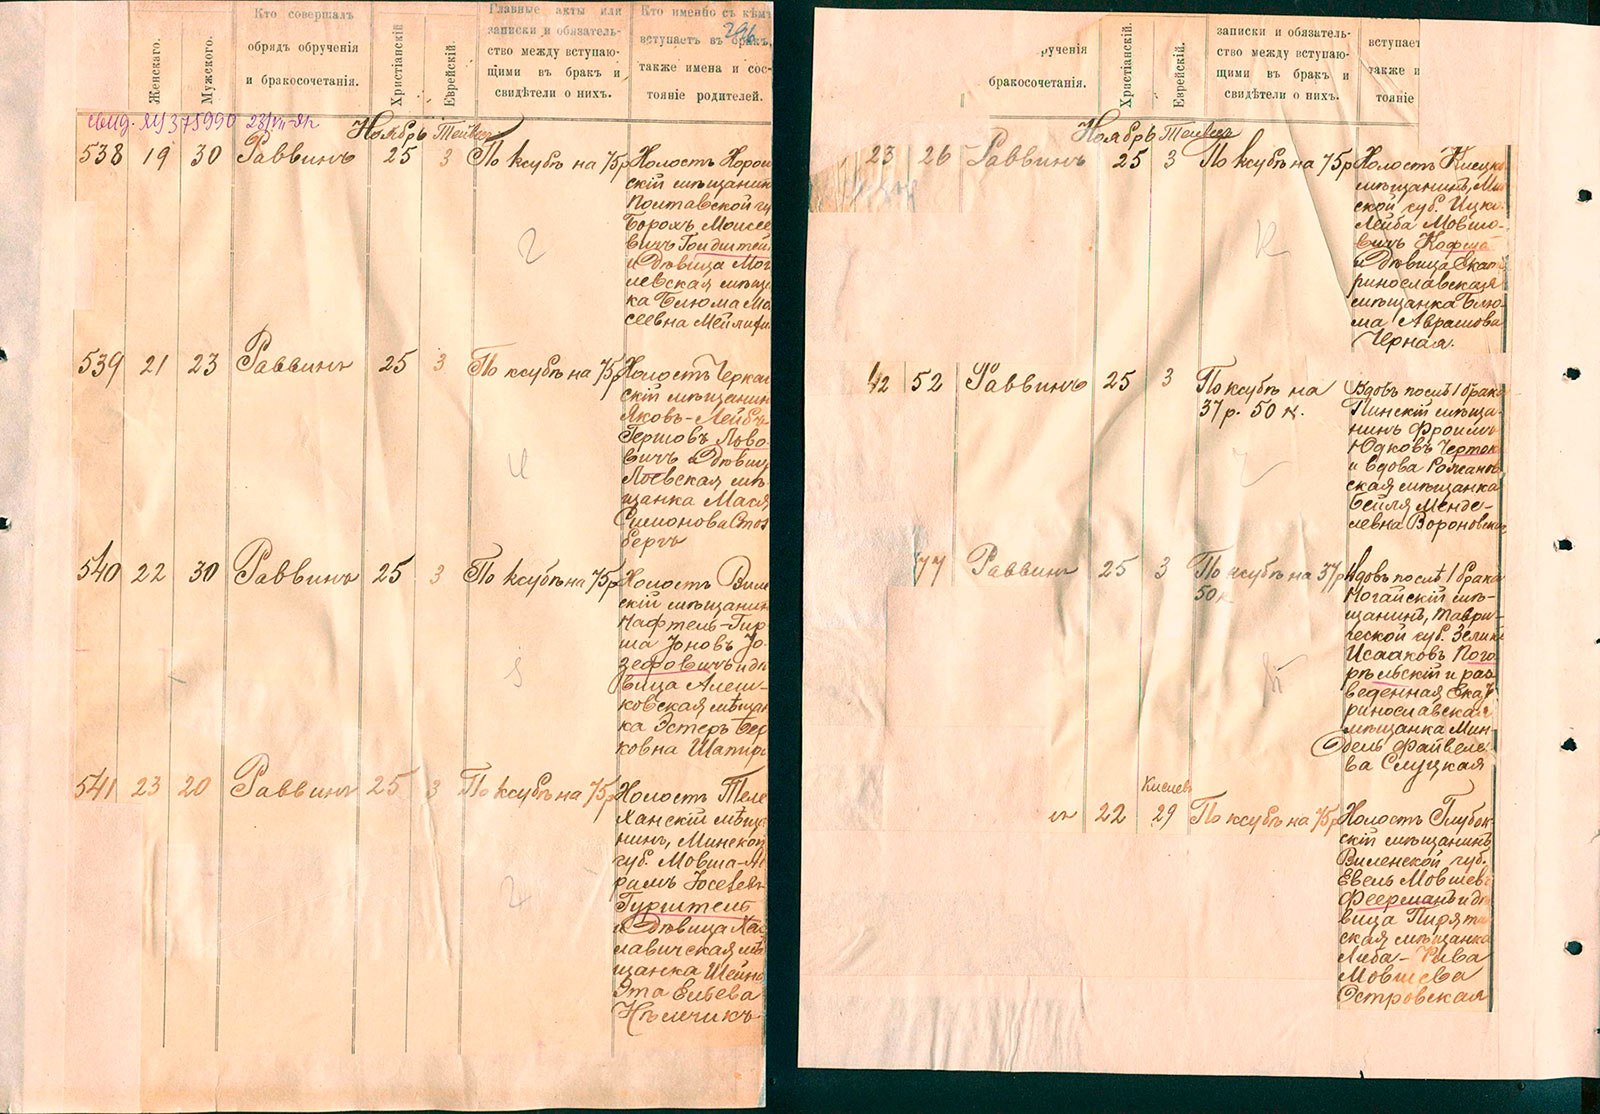 Женскаго.
Мужского.
Кто совершалъ
обрядъ обрученія
и бракосочетанія.
Христіанскій
Еврейскій.
Главные акты или
записки и обязатель-
ство между вступаю-
щими въ бракъ и
свидѣтели о нихъ.
Кто именно съ кѣмъ
вступаетъ въ бракъ,
также имена и сос-
тояніе родителей.
296
Ноябрь Тейвесъ
538 19 30 Раввинъ 25 3 По ксубѣ на 75 р
Холостъ Хорол
скій мѣщанинъ
Полтавской гу
Борохъ Моисее
вичъ Гольдштей
и Дѣвица Мог
левская мѣщ
ка Блюма Мо
сеевна
539 21 23 Раввинъ 25 3 По ксубѣ на 75 р
Холостъ Черкас
скій мѣщанин
Яковъ-Лейбъ
Гершовъ Лово-
вичъ и Дѣвица
Лоевская мѣ-
щанка Мася
Симонова Столь
бергъ
540 22 30 Раввинъ 25 3 По ксубѣ на 75 р
Холостъ Вилен
скій мѣщанин
Нафтель-Гир
ша Іоновъ Іо
зефовичъ и дѣ
вица Алеш-
ковская мѣщан
ка Эстеръ Бер
ковна Шапир
541 23 20 Раввинъ 25 3 По ксубѣ на 75 р
Холостъ Теле
ханскій мѣща
нинъ, Минской
губ. Мовша-Аб
рамъ Іоселевъ
Гурштель
и Дѣвица Хос
лавичская мѣ
щанка Шейна
Эта Ельева
Нѣмчикъ
рученія
бракосочетанія.
Христіанскій.
Еврейскій.
записки и обязатель-
ство между вступаю-
щими въ бракъ и
свидѣтели о нихъ.
вступает
также и
тояніе
Ноябрь Тейвесъ
23 26 Раввинъ 25 3 По ксубѣ на 75 р
Холостъ
мѣщанинъ, Мин
ской губ. Ицко-
Лейба Мовшо-
вичъ
и Дѣвица Екате
ринославская
мѣщанка Блю-
ма Абрамова
Черная.
42 52 Раввинъ 25 3 По ксубѣ на
37 р. 50 к.
Вдовъ послѣ 1 брака
Пинскій мѣща-
нинъ Фроимъ
Юдковъ Чертокъ
и вдова Рожанов
ская мѣщанка
Бейля Менде-
левна Вороновская
77 Раввинъ 25 3 По ксубѣ на 37 р
50 к
Вдовъ послѣ 1 брака
Ногайскій мѣ-
щанинъ, Таври-
ческой губ. Зеликъ
Исааковъ Пого
рѣльскій и раз
веденная Екате
ринославская
мѣщанка Мин
дель Файвеле-
ва Слуцкая
Кислевъ
нъ 22 29 По ксубѣ на 75 р
Холостъ Глубок
скій мѣщанинъ
Виленской губ.
Евель Мовшевъ
Фееrманъ и дѣ
вица Пирятин
ская мѣщанка
Либа-Рива
Мовшева
Островская